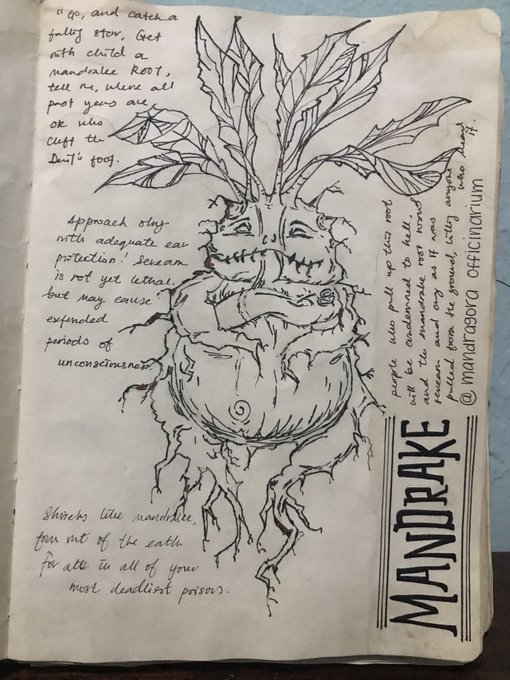 "Go, and catch a
falling star, Get
with child a
mandrake Root,
tell me, where all
past years are,
or who
cleft the
Devil's foot.
Approach only
with adequate ear
protection! Scream
is not yet lethal,
but may cause
extended
periods of
unconsciousness.
Shrieks like mandrake,
torn out of the earth
for in all of your
most deadliest poisons.
people who pull up this root
will be condemned to hell,
and the mandrake root would
scream and cry as it was
pulled from the ground, killing anyone
who heard it.
@ mandragora officinarium
MANDRAKE